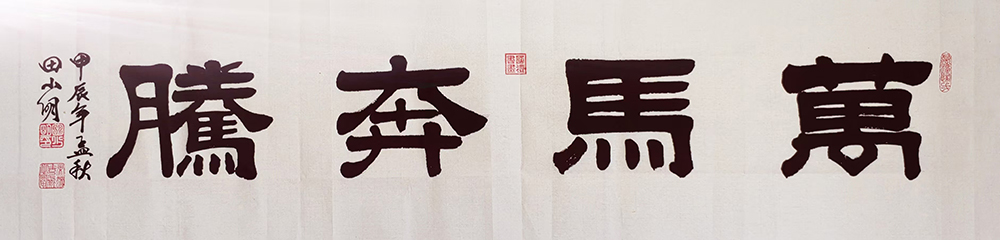 萬馬奔騰
甲辰年孟秋
田小明